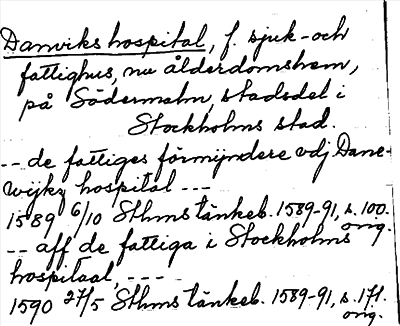 Danviks hospital, f. sjuk- och
fattighus, nu ålderdomshem,
på Södermalm, stadsdel i
Stockholms stad.
-- de fattiges förmijndere vdj Dane-
wijkz hospital ---
1589 6/10 Sthms tänkeb. 1589-91, s. 100.
orig.
-- aff de fattiga i Stockholms
hospitaal, ----
1590 27/5 Sthms tänkeb. 1589-91, s. 171.
orig.